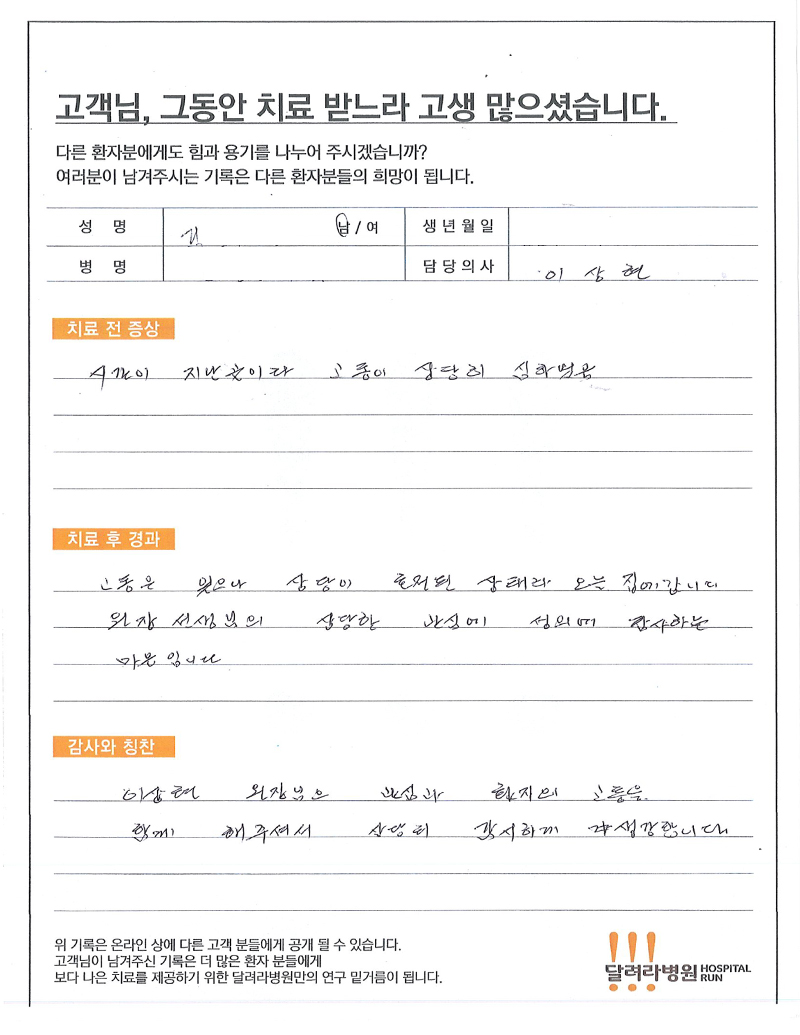 고객님, 그동안 치료 받느라 고생 많으셨습니다.
다른 환자분에게도 힘과 용기를 나누어 주시겠습니까?
여러분이 남겨주시는 기록은 다른 환자분들의 희망이 됩니다.
성 명 김 남 / 여 생년월일
병 명 담당의사 이상현
치료 전 증상
시간이 지난곳이라 고통이 상당히 심하였음
치료 후 경과
고통은 있으나 상당이 호전된 상태라 오늘 집에갑니다
원장 선생님의 상당한 관심에 성의에 감사하는
마음입니다
감사와 칭찬
이상현 원장님은 관심과 환자의 고통을
함께 해주셔서 상당히 감사하게 생각합니다
위 기록은 온라인 상에 다른 고객 분들에게 공개 될 수 있습니다.
고객님이 남겨주신 기록은 더 많은 환자 분들에게
보다 나은 치료를 제공하기 위한 달려라병원만의 연구 밑거름이 됩니다.
달려라병원 HOSPITAL RUN